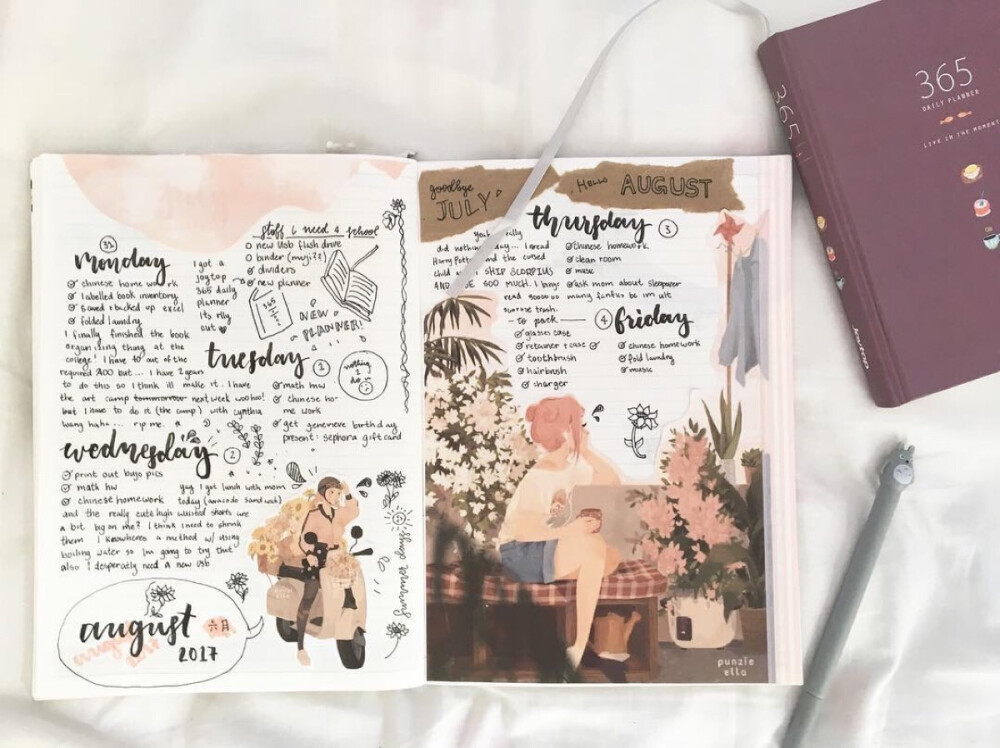 31
monday
chinese home work
labelled book inventory
saved + backed up excel
folded laundry
I finally finished the book
organizing thing at the
college! I have 40 out of the
required 200 but... I have 2 years
to do this so I think ill make it. I have
the art camp tommorrow next week woohoo!
but I have to do it (the camp) with cynthia
wang haha... rip me.
I got a
joytop
365 daily
planner
Its rlly
cute
stuff i need 4 school
new usb flush drive
binder (muji??)
dividers
new planner
365
NEW
PLANNER!
tuesday
1
math hw
chinese ho-
me work
get genevieve birthday
present: sephora gift card
nothing
2 do
wednesday
2
print out bujo pics
math hw
chinese homework
yay I got lunch with mom
today (avacado sandwich)
and the really cute high waisted shorts are
a bit big on me? I think I need to shrink
them I knowheres a method w/ using
boiling water so Im going to try that
also I desperatly need a new usb
summer days
august
六月
2017
august
2017
punzie
ella
goodbye
JULY
HELLO AUGUST
thursday
3
Yeah rlly
did nothing day... I read
Harry Potter and the cursed
child SHIP SCORPIUS
AND SOO MUCH. I binge
read sooooo many fanfics be im uit
surprise trash.
chinese homework
clean room
music
ask mom about sleepover
to pack
glasses case
retainer + case
toothbrush
hairbrush
charger
4
friday
chinese homework
fold laundry
music
punzie
ella
365
365
DAILY PLANNER
LIVE IN THE MOMENT